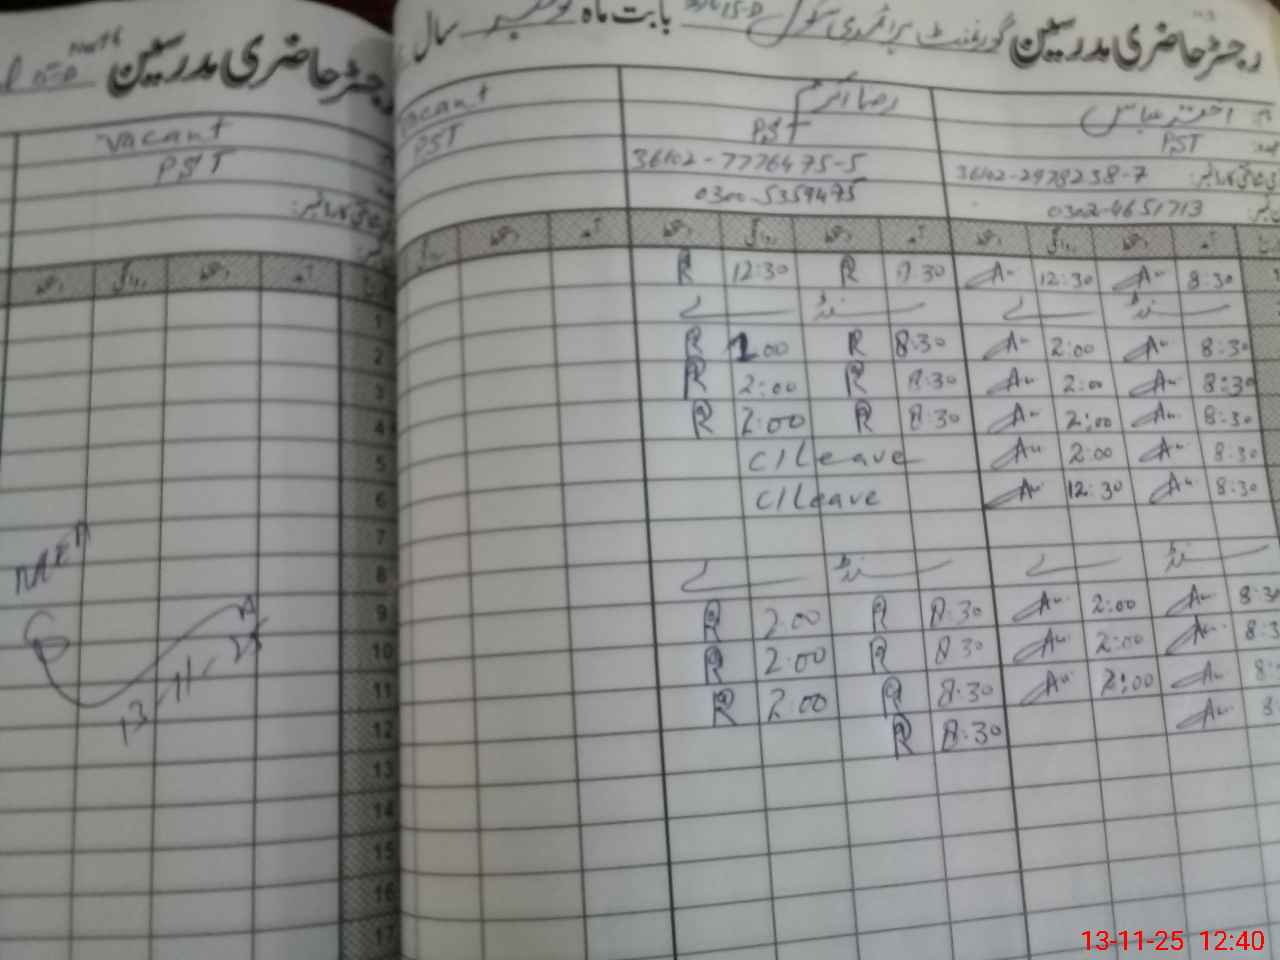 رجسٹر حاضری مدرسین گورنمنٹ پرائمری سکول 15-D بابت ماہ نومبر سال
اختر عباس
PST
36102-2978238-7
0302-4651713
رضا اکرم
PST
36102-7776475-5
0300-5359475
Vacant
PST
آمد دستخط روانگی دستخط آمد دستخط روانگی دستخط آمد دستخط روانگی
8:30 A 12:30 A 8:30 R 12:30 R
سنڈے سنڈے
8:30 A 2:00 A 8:30 R 2:00 R
8:30 A 2:00 A 8:30 R 2:00 R
8:30 A 2:00 A 8:30 R 2:00 R
8:30 A 2:00 A C/Leave
8:30 A 12:30 A C/Leave
سنڈے سنڈے
8:30 A 2:00 A 8:30 R 2:00 R
8:3 A 2:00 A 8:30 R 2:00 R
8: A 2:00 A 8:30 R 2:00 R
8 A 8:30 R
رجسٹر حاضری مدرسین
Vacant
PST
آمد دستخط روانگی دستخط
1
2
3
4
5
6
7
8
9
10
11
12
13
14
15
16
17
MEA
13-11-25
13-11-25 12:40